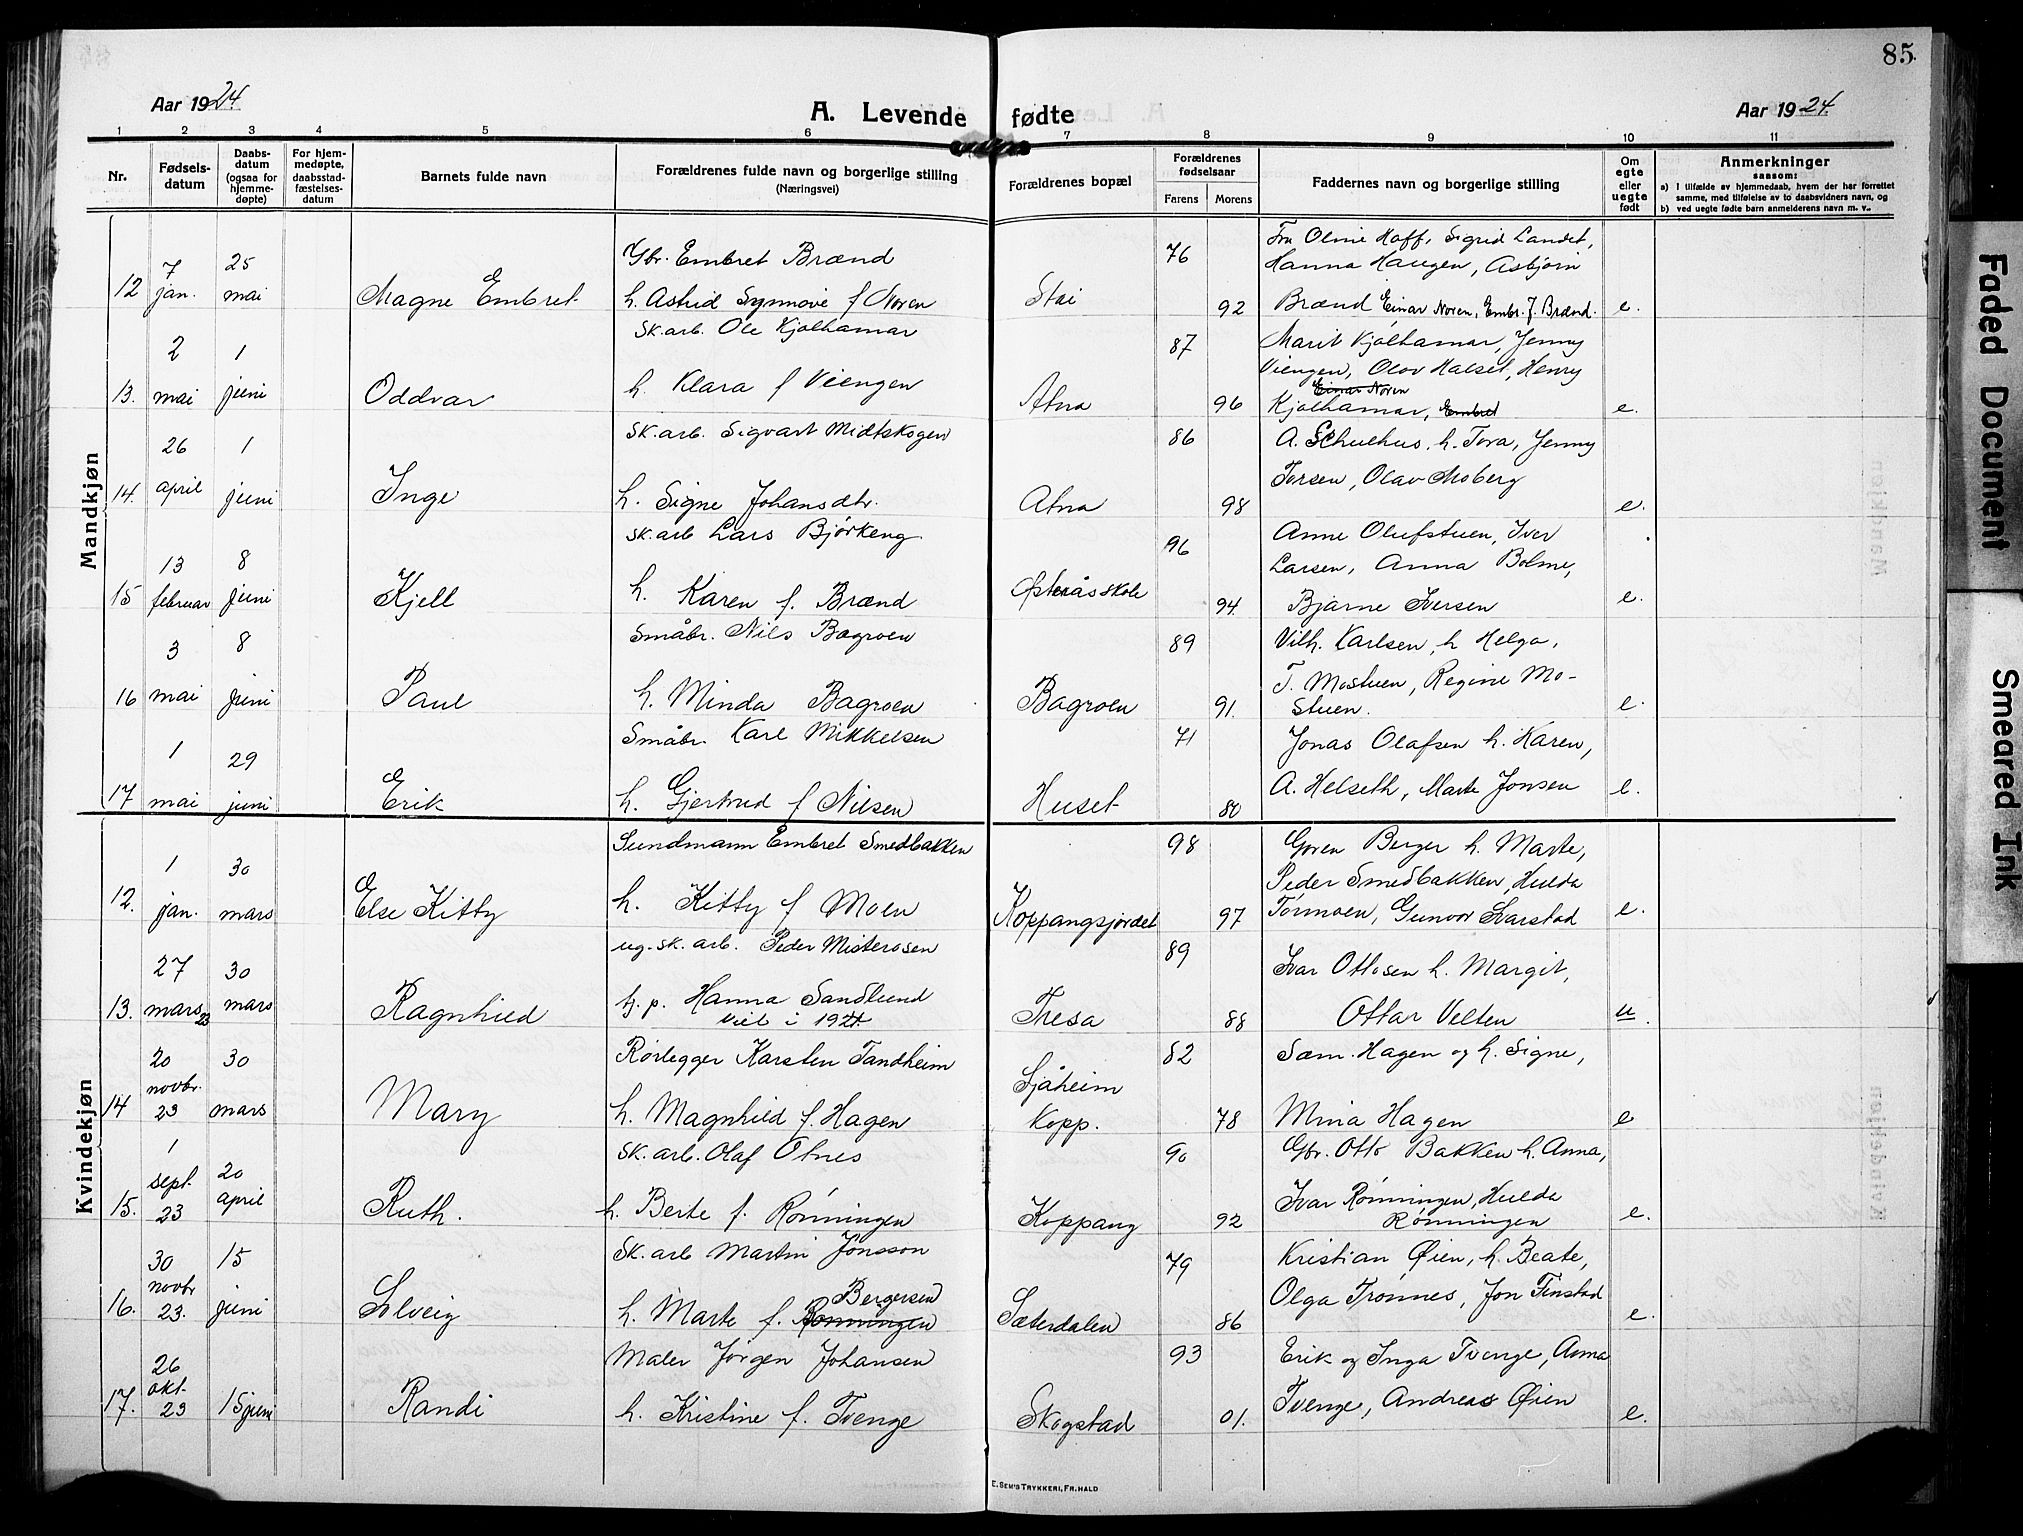 85
Aar 1924
A. Levende fødte
Aar 1924
1 2 3 4 5 6 7 8 9 10 11
Nr.
Fødsels-
datum
Daabs-
datum
(ogsaa for
hjemme-
døpte)
For hjem-
medøpte,
daabsstad-
fæstelses-
datum
Barnets fulde navn
Forældrenes fulde navn og borgerlige stilling
(Næringsvei)
Forældrenes bopæl
Forældrenes
fødselsaar
Farens Morens
Faddernes navn og borgerlige stilling
Om
egte
eller
uegte
født
Anmerkninger
sansom:
a) I tilfælde av hjemmedaab, hvem der har forrettet
samme, med tilføielse av to daabsvidners navn, og
b) ved uegte fødte barn anmelderens navn m. v..
Mandkjøn
12 7 jan. 25 mai Magne Embret
Gbr. Embret Brænd
h. Astrid Synnøve f Noren
Stai 76 92
Fru Oline Hoff, Sigrid Landet,
Hanna Haugen, Asbjørn
Brænd Einar Noren, Embr. J. Brænd. e.
13. 2 mai 1 juni Oddvar
Sk.arb. Ole Kjølhamar
h. Klara f Viengen
Atna 87 96
Marit Kjølhamar, Jenny
Viengen, Olav Halset, Henry
Einar Noren
Kjølhamar, Embret e.
14. 26 april 1 juni Inge
Sk.arb. Sigvart Midtskogen
h. Signe Johansdtr.
Atna 86 98
A. Schuehus, h. Tora, Jenny
Torsen, Olav Moberg e.
15 13 februar 8 juni Kjell
Sk.arb Lars Bjørkeng
h. Karen f. Brænd
Østerås skole 96 94.
Anne Olufstuen, Iver
Larsen, Anna Bolme,
Bjarne Iversen e.
16 3 mai 8 juni Paul
Småbr. Nils Bagroen
h. Minda Bagroen
Bagroen 89 91.
Vilh. Karlsen, h Helga,
T. Mostuen, Regine Mo-
stuen. e.
17 1 mai 29 juni Erik
Småbr. Karl Mikkelsen
h. Gjertrud f Nilsen
Huset 71 80
Jonas Olafsen h. Karen,
A. Helseth, Marte Jonsen e.
Kvindekjøn
12. 1 jan. 30 mars Else Kitty
Sundmann Embret Smedbakken
h. Kitty f Moen
Koppangsjordet 98 97
Goren Berger h. Marte,
Peder Smedbakken, Hulda
Tormoen, Gunvor Svarstad e.
13. 27 mars 23 30 mars Ragnhild
ug. sk. arb. Peder Misterosen
tj. p. Hanna Sandlund
viet i 1924.
Tresa 89 88
Ivar Ottosen h. Margit,
Ottar Velten u.
14 20 novbr. 23 30 mars Mary
Rørlegger Karsten Tandheim
h. Magnhild f. Hagen
Sjåheim
Kopp. 82 78
Sam. Hagen og h. Signe,
Mina Hagen e
15. 1 sept. 23 20 april Ruth.
Sk. arb. Olaf Otnes
h. Berte f. Rønningen
Koppang 90 92
Gbr. Otto Bakken h. Anna,
Ivar Rønningen, Hulda
Rønningen e.
16. 30 novbr 23. 15 juni Solveig
Sk. arb Martin Jonsson
Bergersen
h. Marte f. Rønningen
Sæterdalen 79 86
Kristian Øien, h. Beate,
Olga Trønnes, Jon Finstad e.
17. 26 okt. 23 15 juni Randi
Maler Jørgen Johansen
h. Kristine f. Tvenge
Skogstad 93 01.
Erik og Inga Tvenge, Anna
Tvenge, Andreas Øien e.
E. SEM'S TRYKKERI, FR.HALD
Faded Document
Smeared Ink